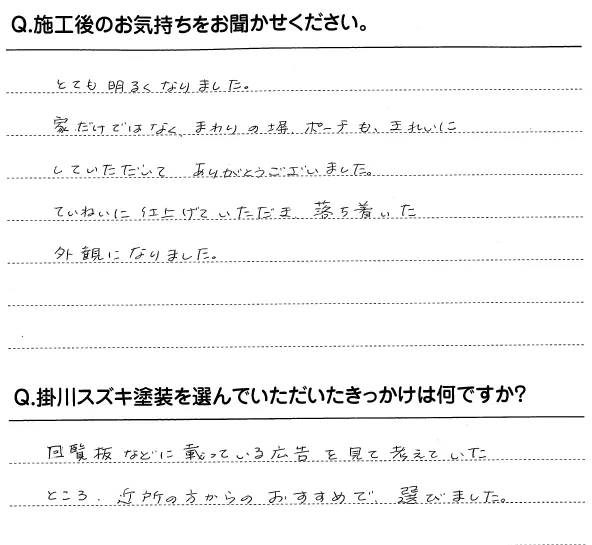 Q.施工後のお気持ちをお聞かせください。
とても明るくなりました。
家だけではなく、まわりの塀、ポーチも、きれいに
していただいて ありがとうございました。
ていねいに仕上げていただき、落ち着いた
外観になりました。
Q.掛川スズキ塗装を選んでいただいたきっかけは何ですか?
回覧板などに載っている広告を見て考えていた
ところ、近所の方からのおすすめで、選びました。